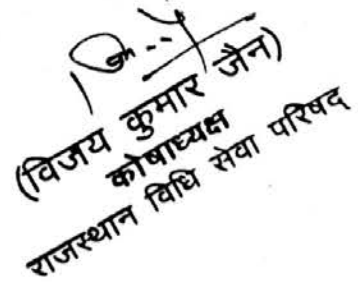 (विजय कुमार जैन)
कोषाध्यक्ष
राजस्थान विधि सेवा परिषद